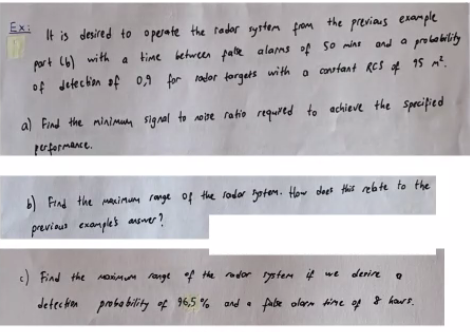 Ex: It is desired to operate the radar system from the previous example
part (b) with a time between false alarms of 50 mins and a probability
of detection of 0,9 for radar targets with a constant RCS of 15 m².
a) Find the minimum signal to noise ratio required to achieve the specified
performance.
b) Find the maximum range of the radar system. How does this relate to the
previous example's answer?
c) Find the maximum range of the radar system if we desire a
detection probability of 96,5 % and a false alarm time of 8 hours.